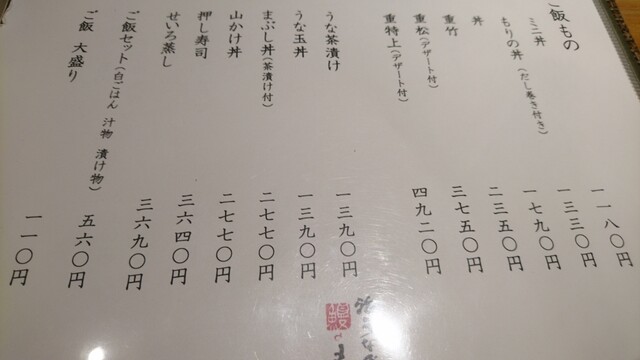 ご飯もの
ミニ丼 一一八〇円
もりの丼(だし巻き付き) 一三三〇円
丼 一七九〇円
重竹 二三五〇円
重松(デザート付) 三七五〇円
重特上(デザート付) 四九二〇円
うな茶漬け 一三九〇円
うな玉丼 一三九〇円
まぶし丼(茶漬け付) 二七七〇円
山かけ丼 二七七〇円
押し寿司 三六四〇円
せいろ蒸し 三六九〇円
ご飯セット(白ごはん 汁物 漬け物) 五六〇円
ご飯 大盛り 一一〇円